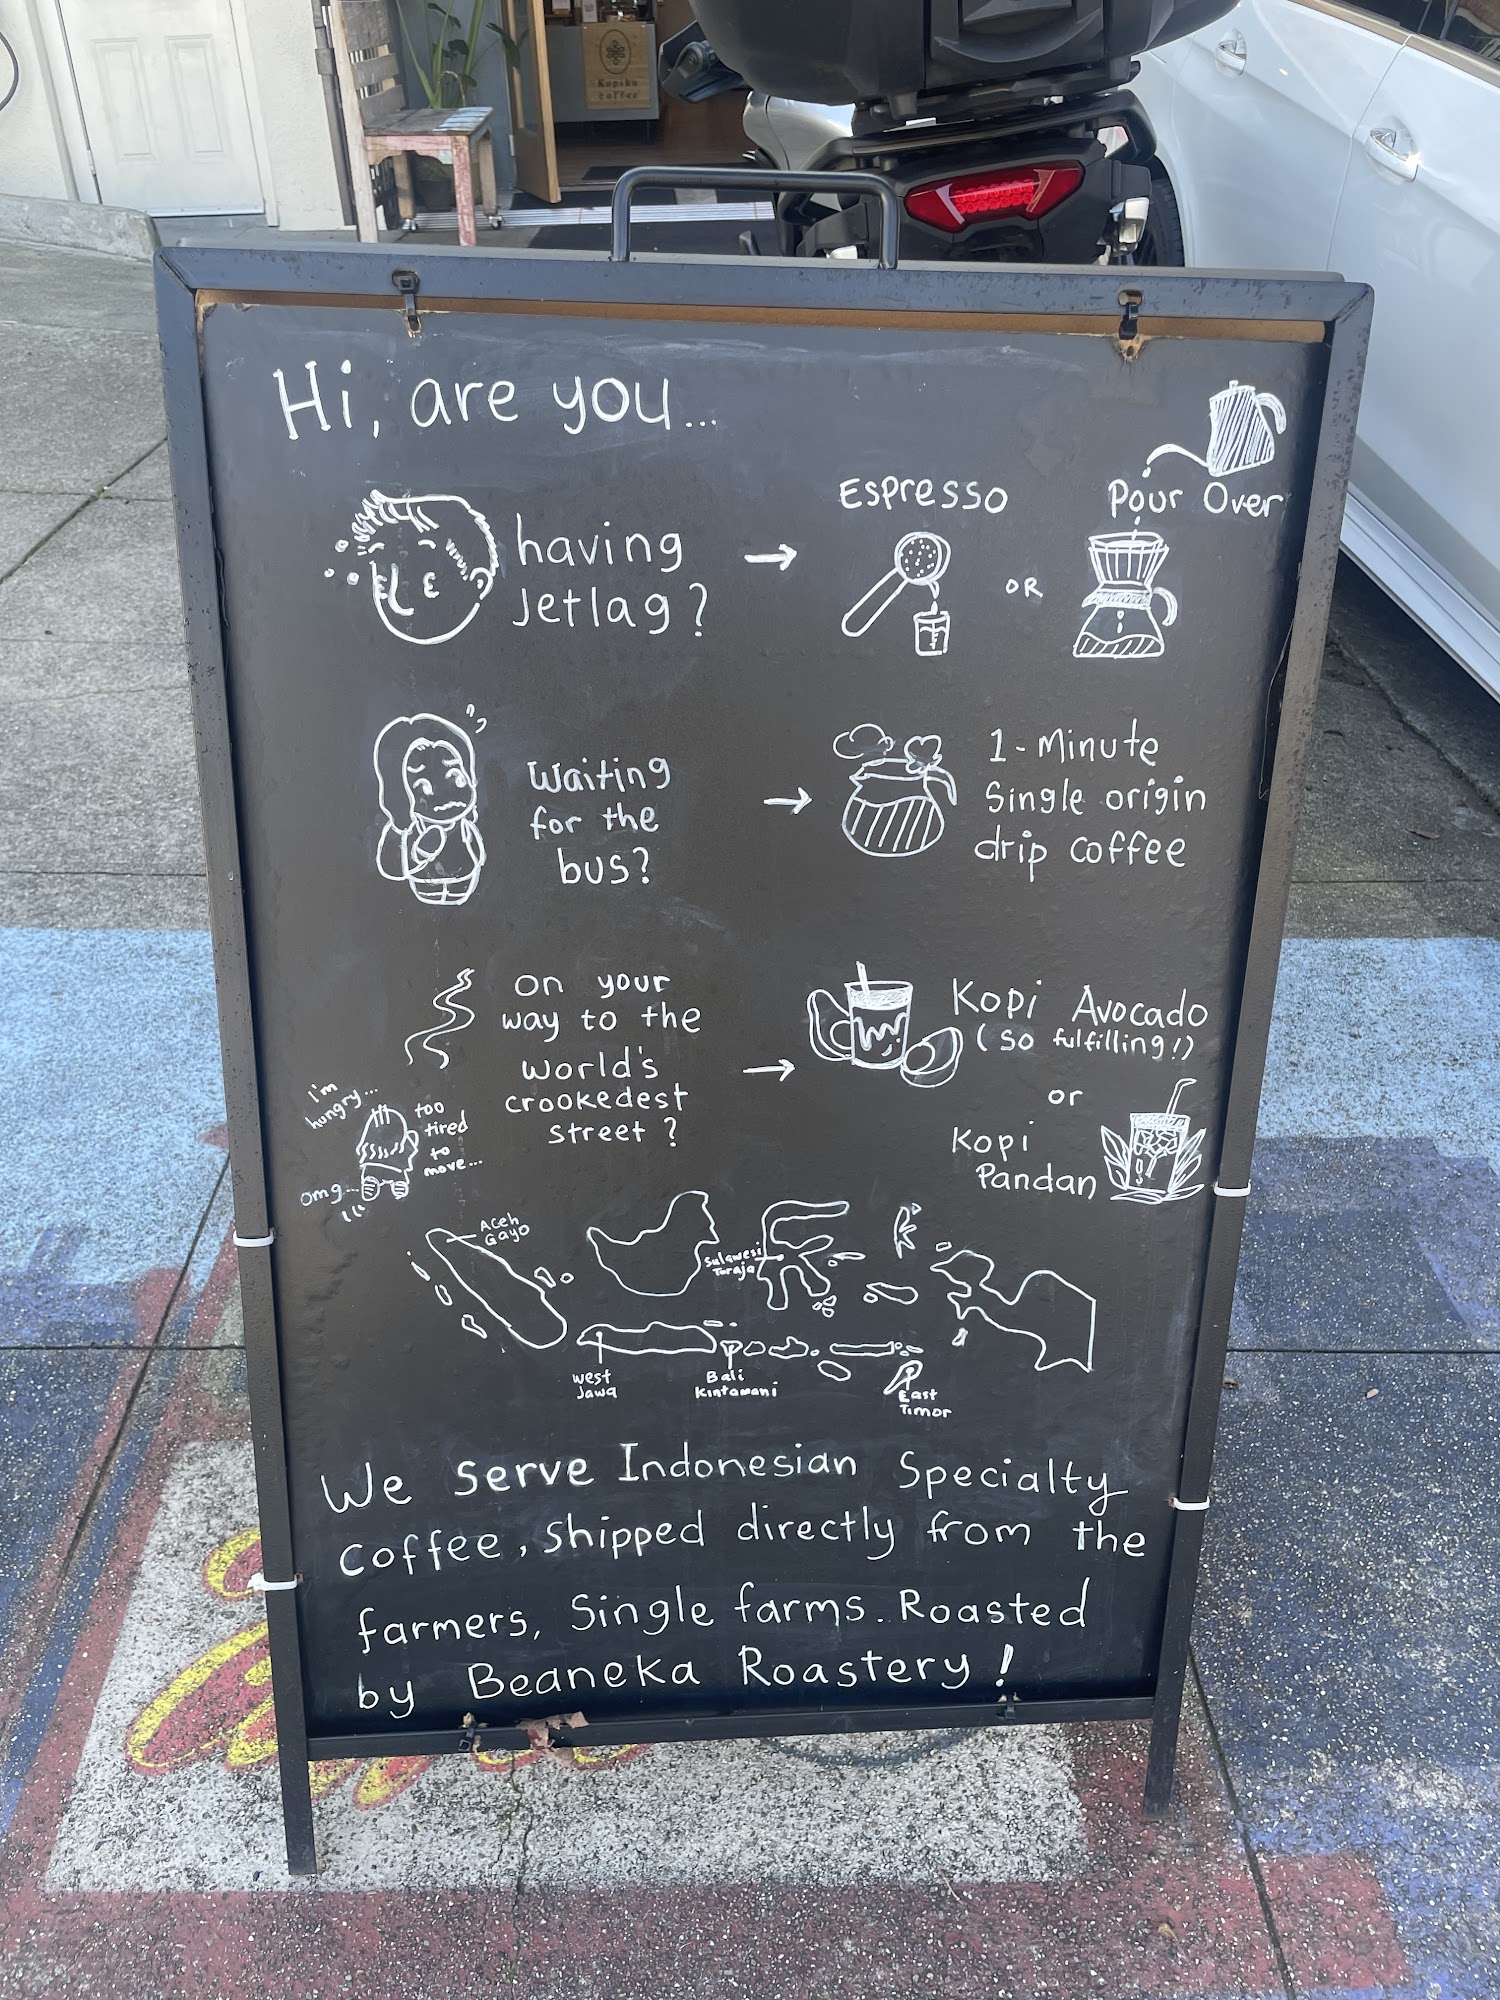 Kopiku
coffee
Hi, are you...
having
Jetlag?
Espresso
OR
Pour Over
Waiting
for the
bus?
1-Minute
Single origin
drip coffee
I'm
hungry...
too
tired
to
move...
omg...
on your
way to the
world's
crookedest
street?
Kopi Avocado
(so fulfilling!)
or
Kopi
Pandan
Aceh
Gayo
Sulawesi
Toraja
West
Jawa
Bali
Kintamani
East
Timor
We serve Indonesian Specialty
coffee, shipped directly from the
farmers, Single farms. Roasted
by Beaneka Roastery!